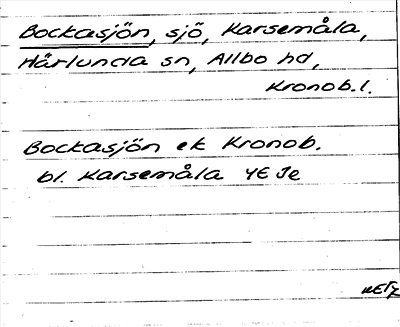 Bockasjön, sjö, Karsemåla,
Härlunda sn, Allbo hd,
Kronob.l.
Bockasjön ek Kronob.
bl. Karsemåla 4E Je